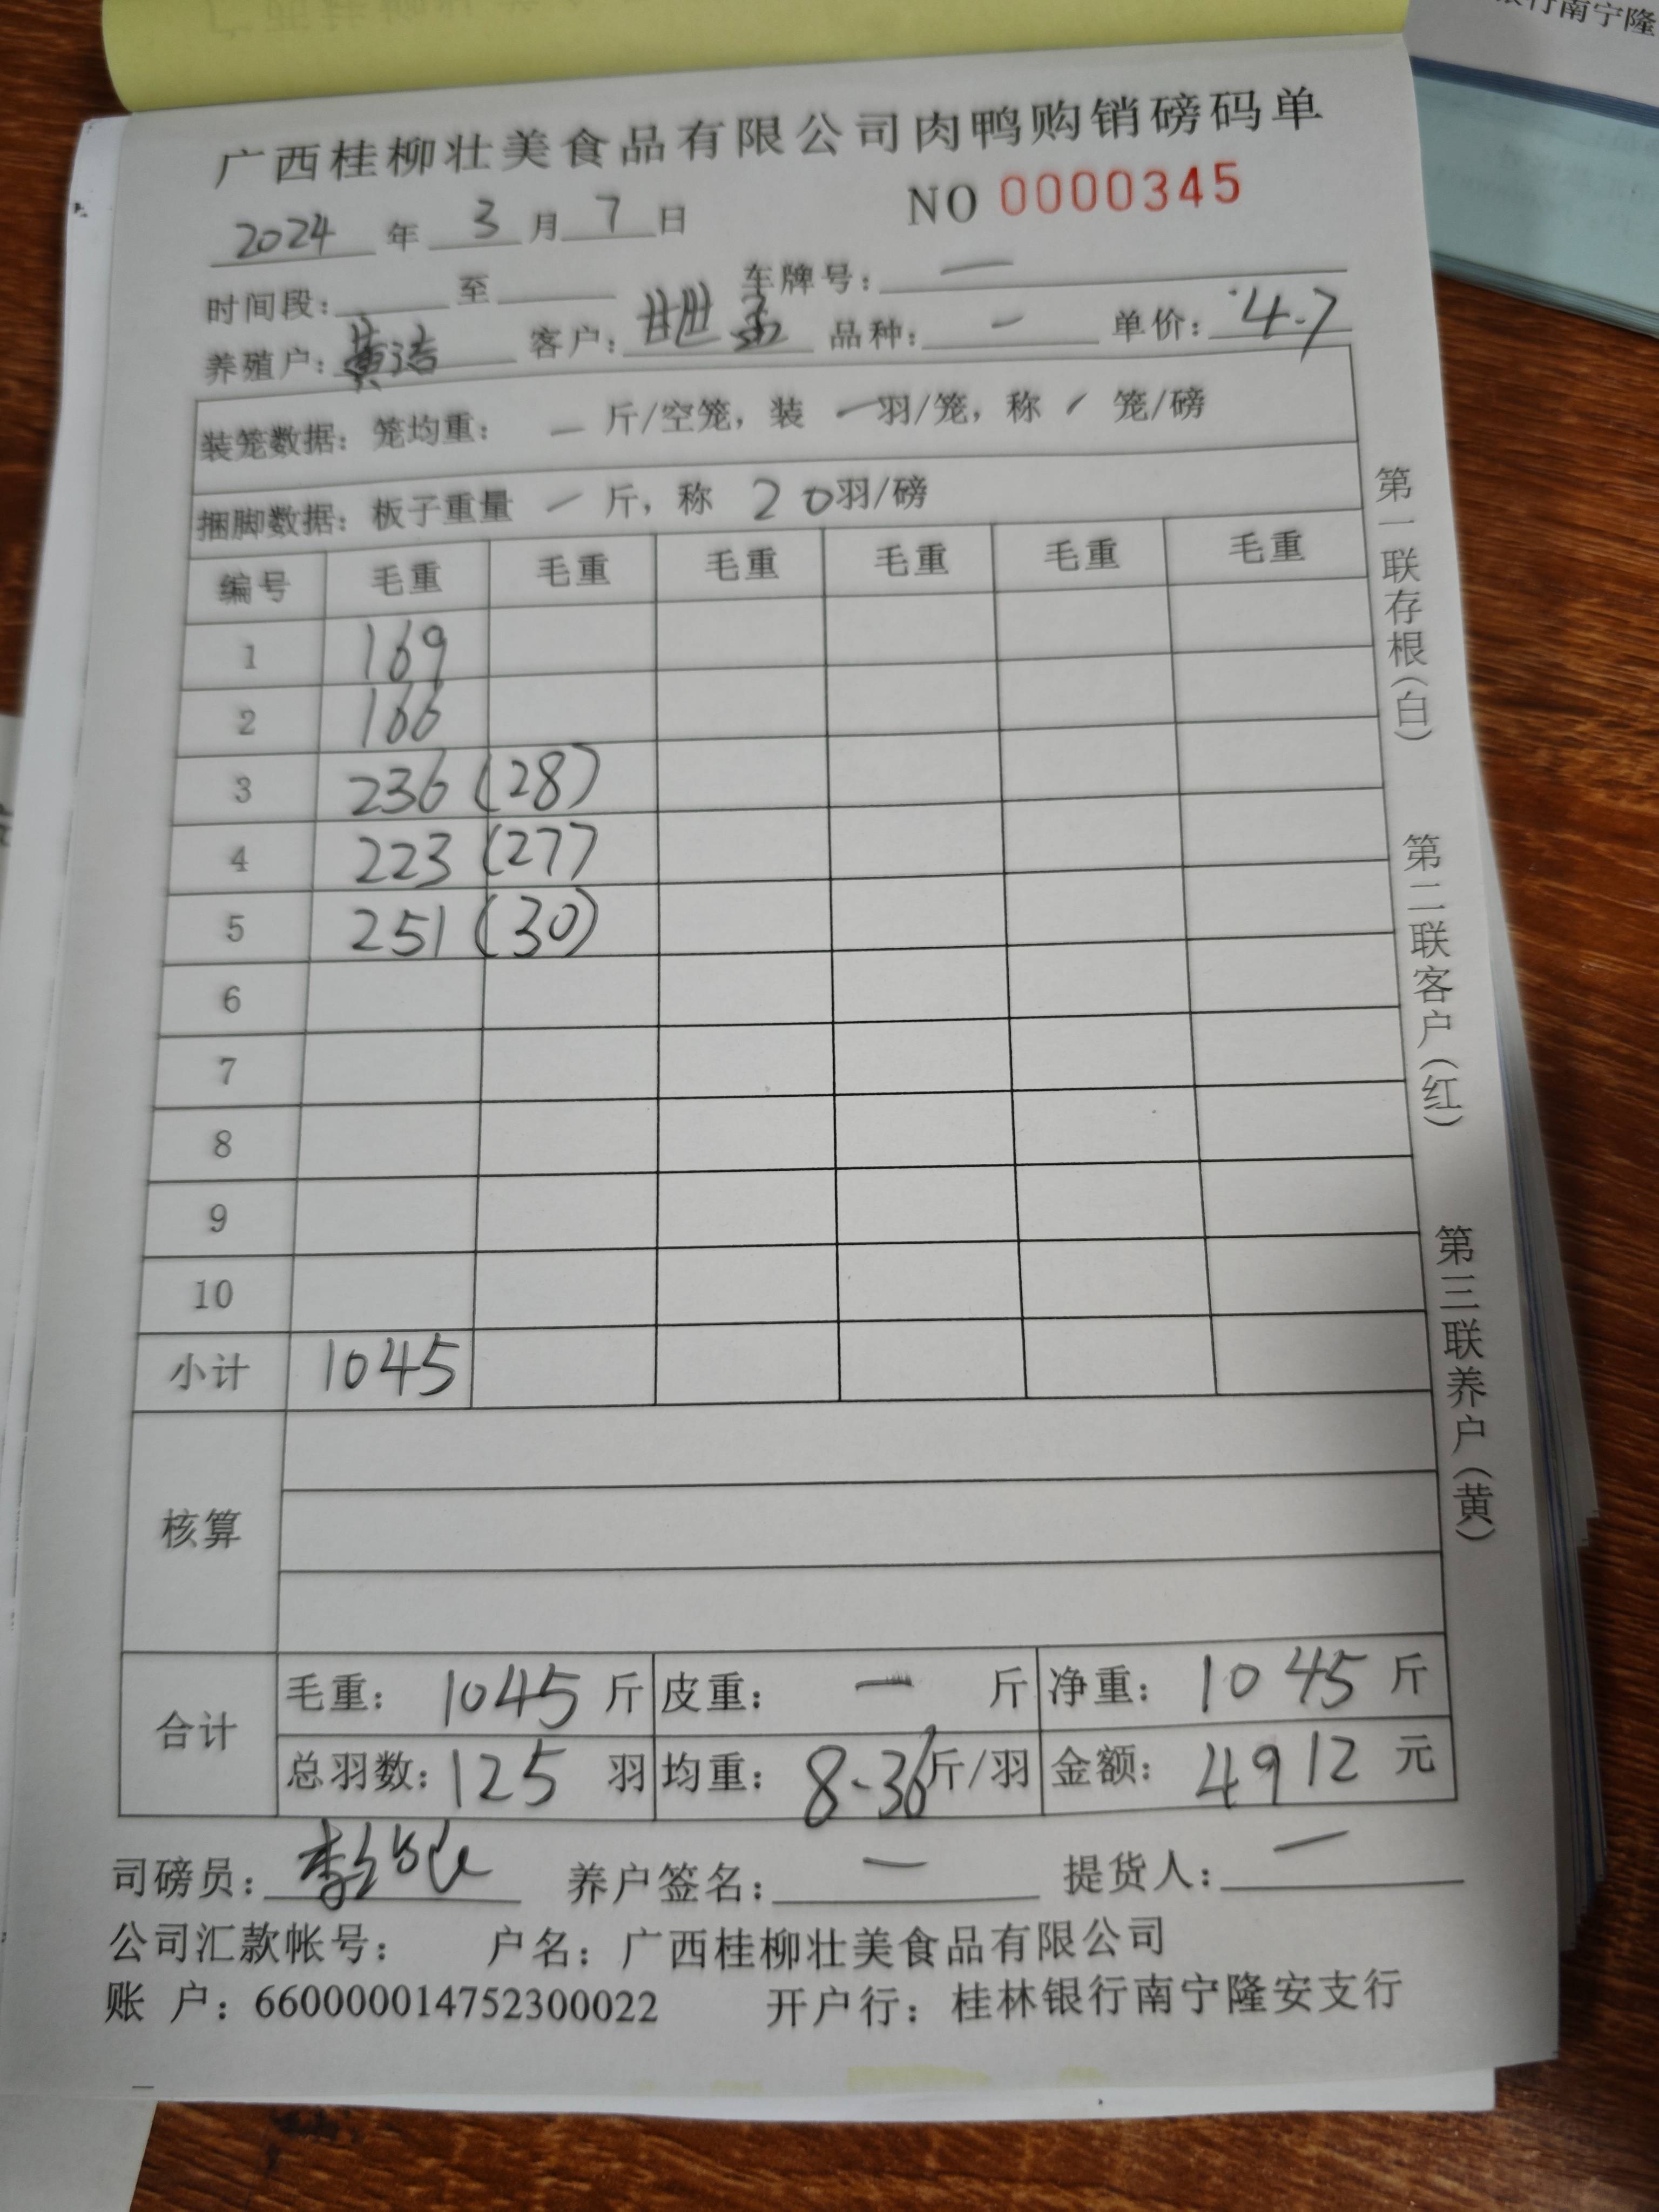 行南宁隆
广西桂柳壮美食品有限公司肉鸭购销磅码单
NO 0000345
2024 年 3 月 7 日
时间段: 至 车牌号: 一
养殖户: 黄洁 客户: 甘世 品种: 一 单价: 4.7
装笼数据: 笼均重: 一 斤/空笼, 装 一 羽/笼, 称 / 笼/磅
捆脚数据: 板子重量 一 斤, 称 20 羽/磅
编号 毛重 毛重 毛重 毛重 毛重 毛重
1 169
2 166
3 236 (28)
4 223 (27)
5 251 (30)
6
7
8
9
10
小计 1045
核算
合计
毛重: 1045 斤 皮重: 一 斤 净重: 1045 斤
总羽数: 125 羽 均重: 8.36 斤/羽 金额: 4912 元
司磅员: 李 养户签名: 一 提货人: 一
公司汇款帐号: 户名: 广西桂柳壮美食品有限公司
账 户: 660000014752300022 开户行: 桂林银行南宁隆安支行
第一联存根(白)
第二联客户(红)
第三联养户(黄)